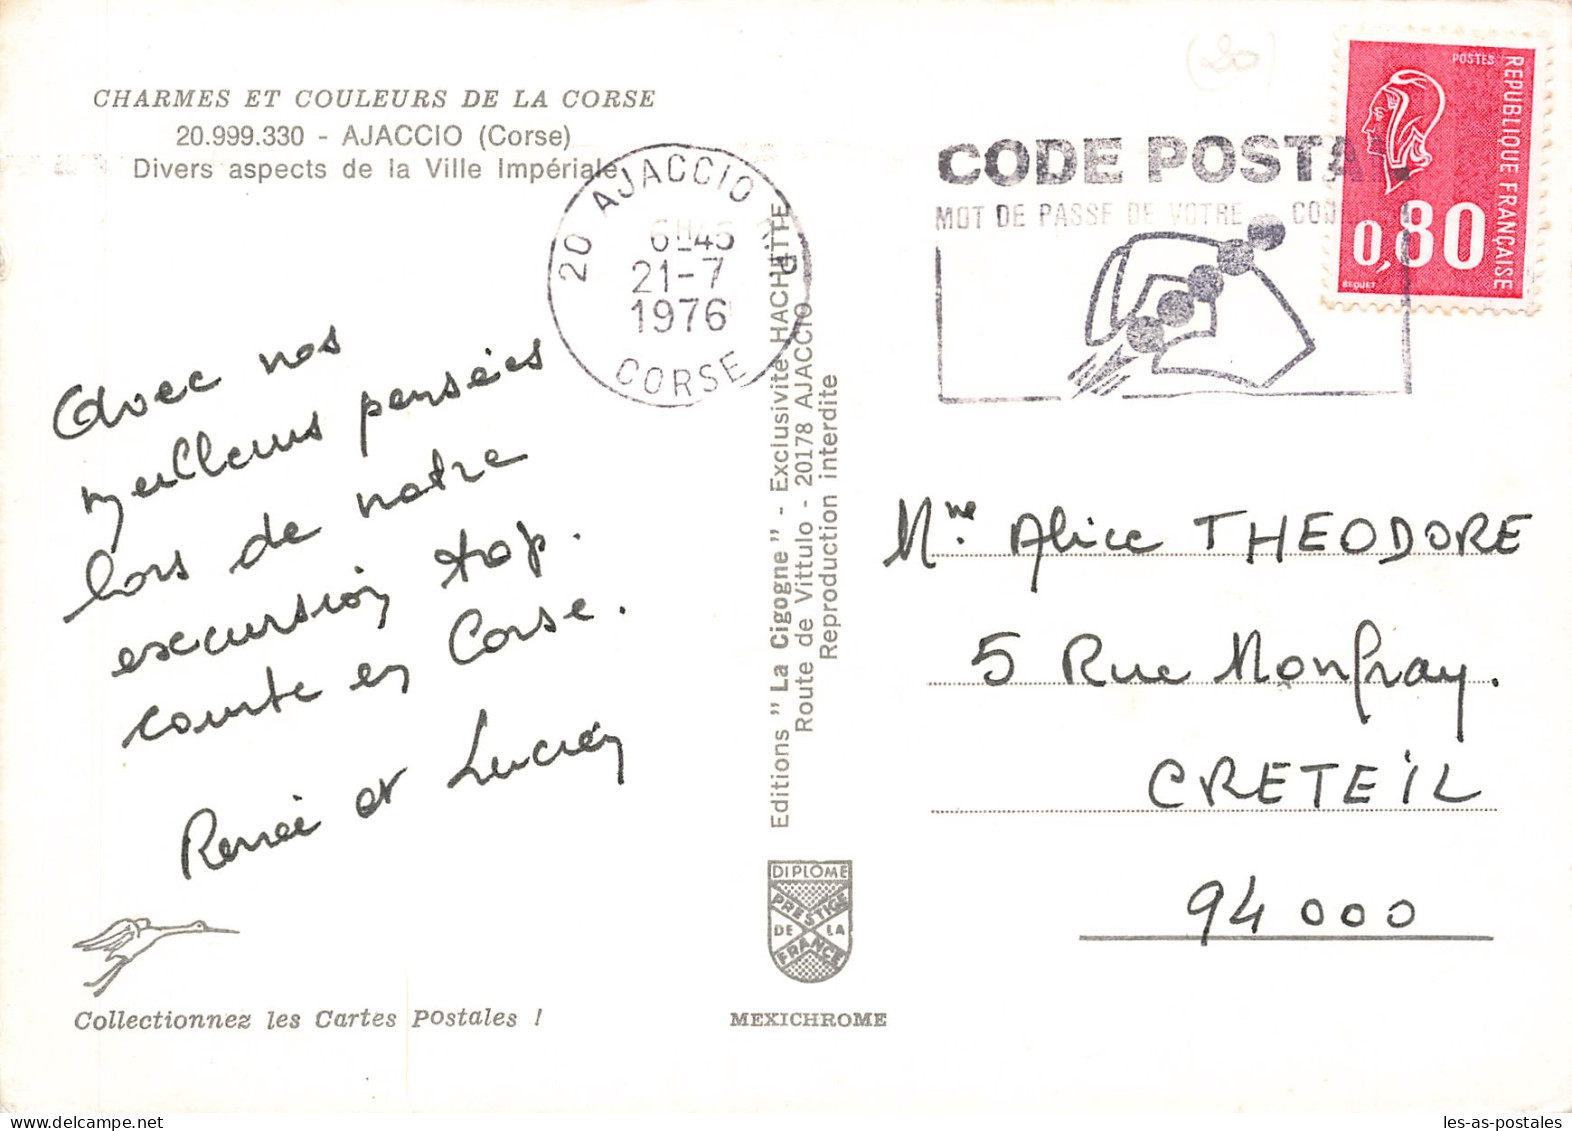 CHARMES ET COULEURS DE LA CORSE
20.999.330 - AJACCIO (Corse)
Divers aspects de la Ville Impériale
20 AJACCIO
6H45
21-7
1976
CORSE
CODE POSTA
MOT DE PASSE DE VOTRE
(20)
POSTES
REPUBLIQUE FRANÇAISE
0,80
BEQUET
Avec nos
meilleures pensées
lors de notre
excursion trop
courte en Corse.
Renée et Lucien
Editions " La Cigogne " - Exclusivité HACHETTE
Route de Vittulo - 20178 AJACCIO
Reproduction interdite
Mme. Alice THEODORE
5 Rue Monfray.
CRETEIL
94 000
DIPLOME
PRESTIGE
DE LA
FRANCE
Collectionnez les Cartes Postales !
MEXICHROME
les-as-postales